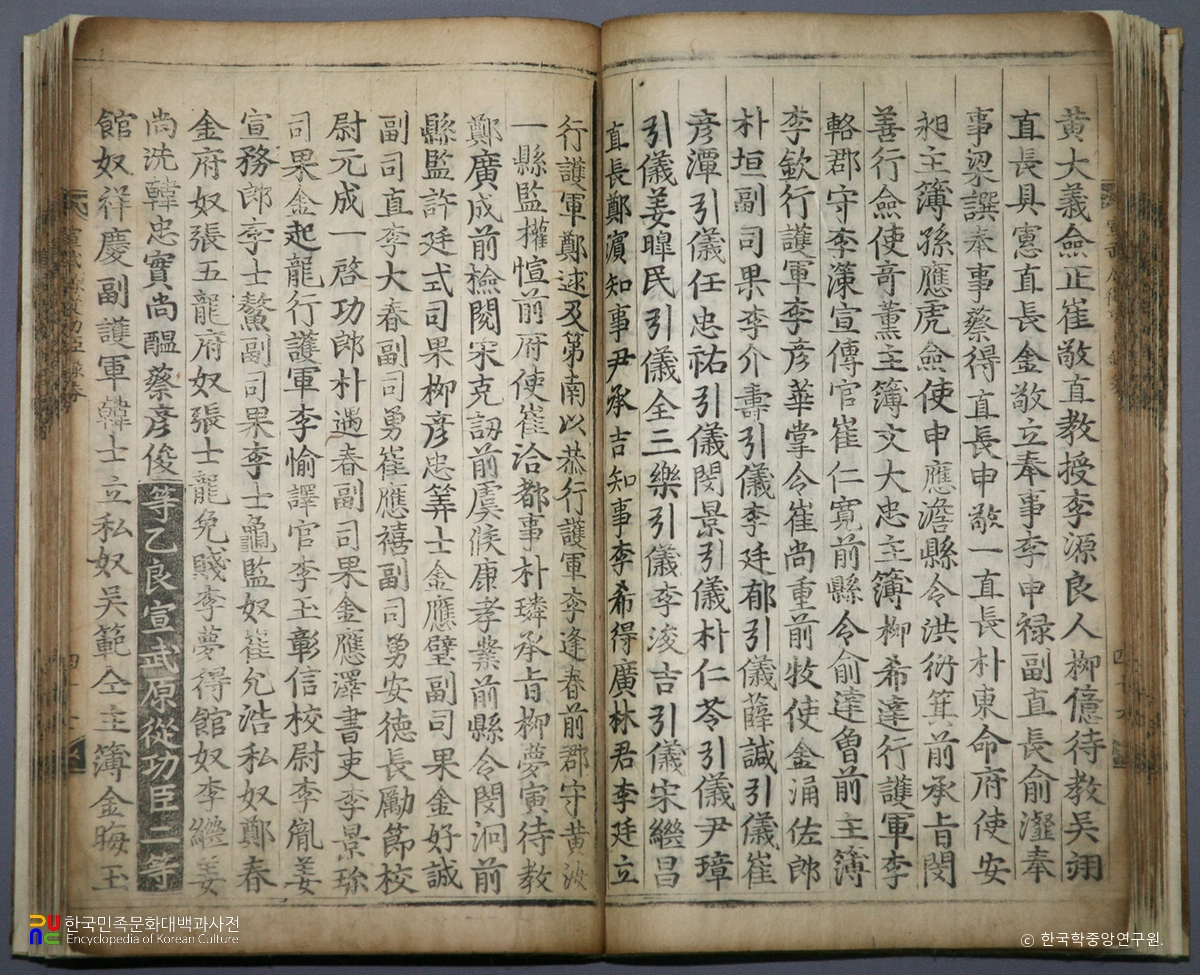 黃大義僉正崔敬直敎授李源良人柳億待敎吳翊
直長具寭直長金敬立奉事李申祿副直長俞瀣奉
事梁譔奉事蔡得直長申敬一直長朴東命府使安
昶主簿孫應虎僉使申應澹縣令洪衍箕前承旨閔
善行僉使竒薰主簿文大忠主簿柳希達行護軍李
輅郡守李 宣傳官崔仁寬前縣令俞達曾前主簿
李欽行護軍李彦華掌令崔尚重前牧使金涌佐郎
朴垣副司果李介壽引儀李廷郁引儀薛諴引儀崔
彦潭引儀任忠祐引儀閔景引儀朴仁苓引儀尹璋
引儀姜皥民引儀全三樂引儀李浚吉引儀宋繼昌
直長鄭濱知事尹承吉知事李希得廣林君李廷立
行護軍鄭逑及第南以恭行護軍李逢春前郡守黃
一縣監權愃前府使崔洽都事朴璘承旨柳夢寅待敎
鄭廣成前撿閱宋克訒前虞候康孝業前縣令閔泂前
縣監許廷式司果柳彦忠筭士金應璧副司果金好誠
副司直李大春副司勇崔應禧副司勇安德長勵節校
尉元成一啓功郎朴遇春副司果金應澤書吏李景
司果金起龍行護軍李愉譯官李玉彰信校尉李胤姜
宣務郎李士鰲副司果李士龜監奴崔允浩私奴鄭春
金府奴張五龍府奴張士龍免賤李夢得館奴李繼姜
尚洗韓忠實尚醞蔡彦俊等乙良宣武原從功臣二等
館奴祥慶副護軍韓士立私奴吳範仝主簿金晦玉
한국민족문화대백과사전
Encyclopedia of Korean Culture
© 한국학중앙연구원.